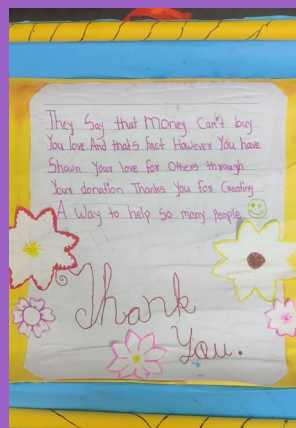 They Say that money Can't buy
You love And thats fact However You have
Shown Your love for Others through
Your donation Thanks You for Creating
A Way to help So many people
Thank
You.